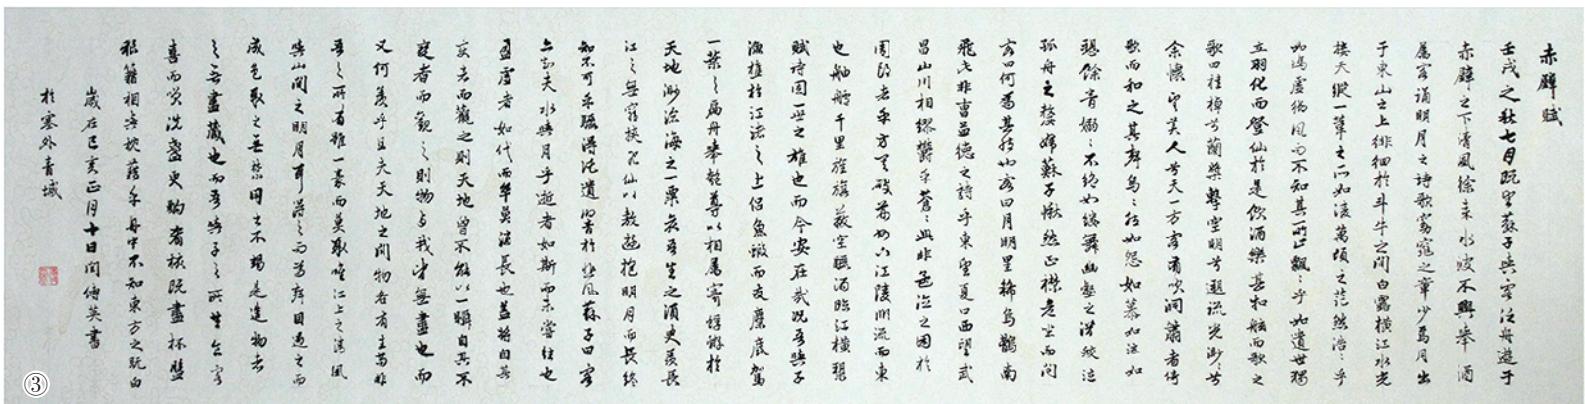 赤壁賦
壬戌之秋七月既望蘇子與客泛舟遊于
赤壁之下清風徐來水波不興舉酒
屬客誦明月之詩歌窈窕之章少焉月出
于東山之上徘徊於斗牛之間白露橫江水光
接天縱一葦之所如凌萬頃之茫然浩〻乎
如馮虛御風而不知其所止飄〻乎如遺世獨
立羽化而登仙於是飲酒樂甚扣舷而歌之
歌曰桂棹兮蘭槳擊空明兮遡流光渺〻兮
余懷望美人兮天一方客有吹洞簫者倚
歌而和之其聲嗚〻然如怨如慕如泣如
訴餘音嫋〻不絕如縷舞幽壑之潛蛟泣
孤舟之嫠婦蘇子愀然正襟危坐而問
客曰何為其然也客曰月明星稀烏鵲南
飛此非曹孟德之詩乎東望夏口西望武
昌山川相繆鬱乎蒼〻此非孟德之困於
周郎者乎方其破荊州下江陵順流而東
也舳艫千里旌旗蔽空釃酒臨江橫槊
賦詩固一世之雄也而今安在哉況吾與子
漁樵於江渚之上侶魚蝦而友麋鹿駕
一葉之扁舟舉匏尊以相屬寄蜉蝣於
天地渺滄海之一粟哀吾生之須臾羨長
江之無窮挾飛仙以遨遊抱明月而長終
知不可乎驟得託遺響於悲風蘇子曰客
亦知夫水與月乎逝者如斯而未嘗往也
盈虛者如代而卒莫消長也蓋將自其
變者而觀之則天地曾不能以一瞬自其不
變者而觀之則物與我皆無盡也而
又何羨乎且夫天地之間物各有主苟非
吾之所有雖一毫而莫取惟江上之清風
與山間之明月耳得之而為聲目遇之而
成色取之無禁用之不竭是造物者
之無盡藏也而吾與子之所共食客
喜而笑洗盞更酌肴核既盡杯盤
狼籍相與枕藉乎舟中不知東方之既白
歲在己亥正月十日閆傳英書
於塞外青城
③